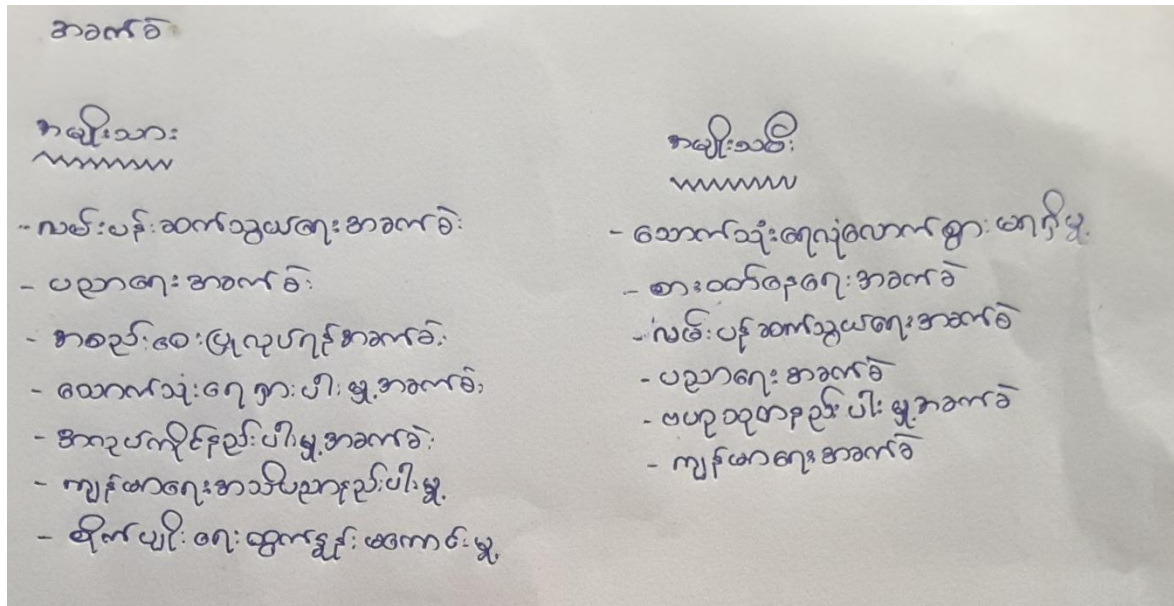 အခက်ခဲ
အမျိုးသား
- လမ်းပန်းဆက်သွယ်ရေးအခက်ခဲ
- ပညာရေးအခက်ခဲ
- အစည်းဝေးပြုလုပ်ရန်အခက်ခဲ
- သောက်သုံးရေရှားပါးမှု့အခက်ခဲ
- အလုပ်ကိုင်နည်းပါးမှု့အခက်ခဲ
- ကျန်းမာရေးအသိပညာနည်းပါးမှု့
- စိုက်ပျိုးရေးထွက်နှုန်းမကောင်းမှု့
အမျိုးသမီး
- သောက်သုံးရေလုံလောက်စွားမရှိမှု့
- စားဝတ်နေရေးအခက်ခဲ
- လမ်းပန်းဆက်သွယ်ရေးအခက်ခဲ
- ပညာရေးအခက်ခဲ
- ဗဟုသုတနည်းပါးမှု့အခက်ခဲ
- ကျန်းမာရေးအခက်ခဲ